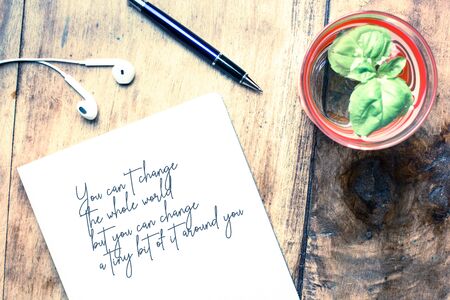 You can't change
the whole world
but you can change
a tiny bit of it around you